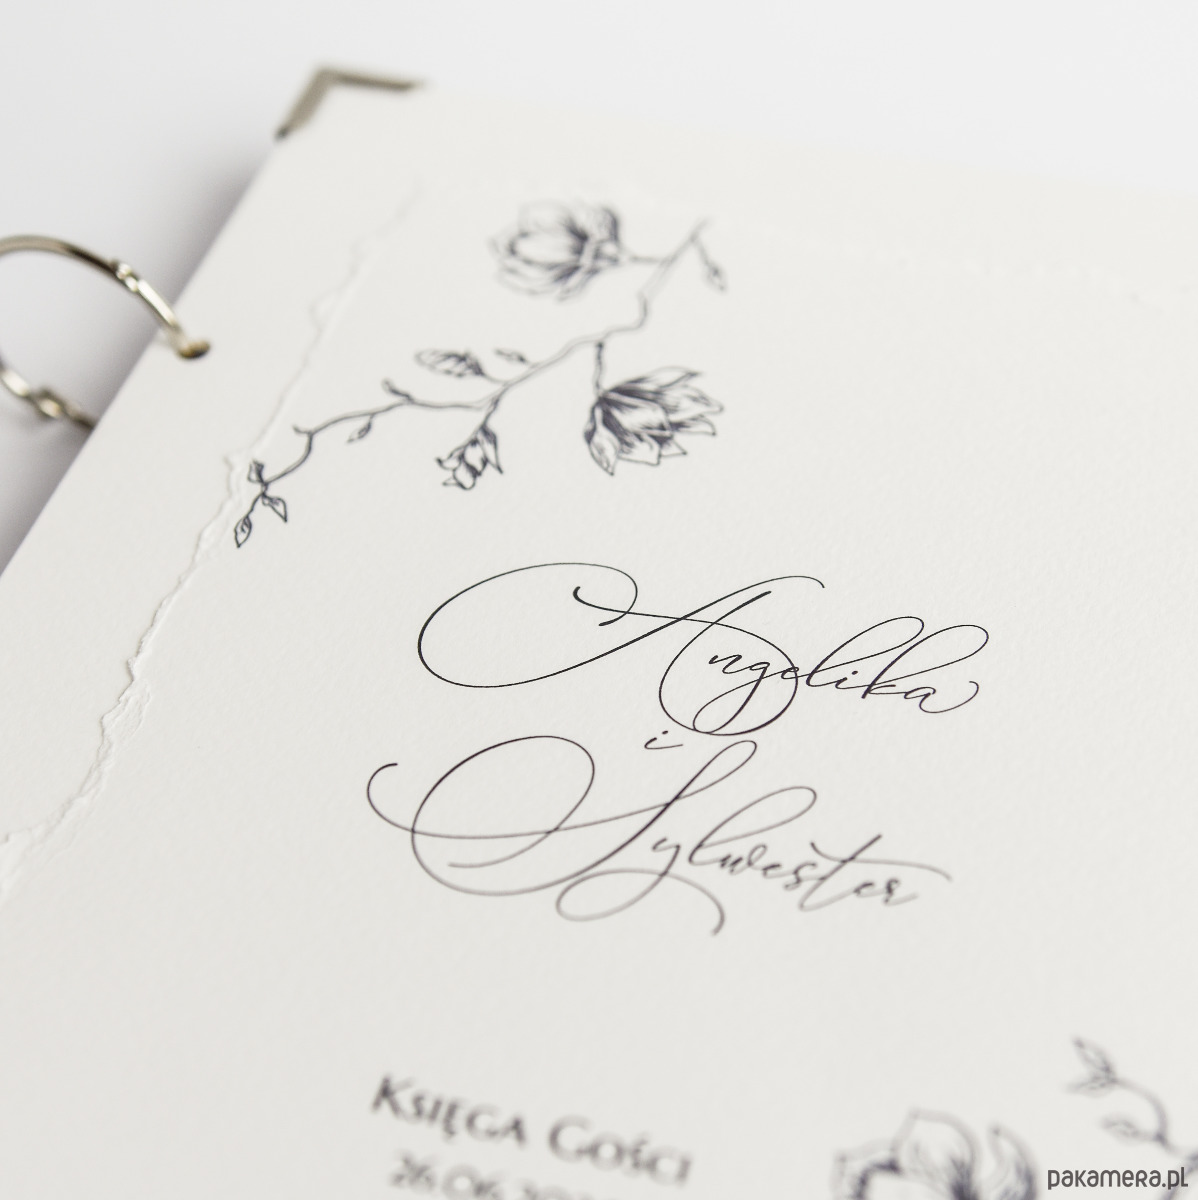 Angelika
i
Sylwester
Księga Gości
26.06.
pakamera.pl